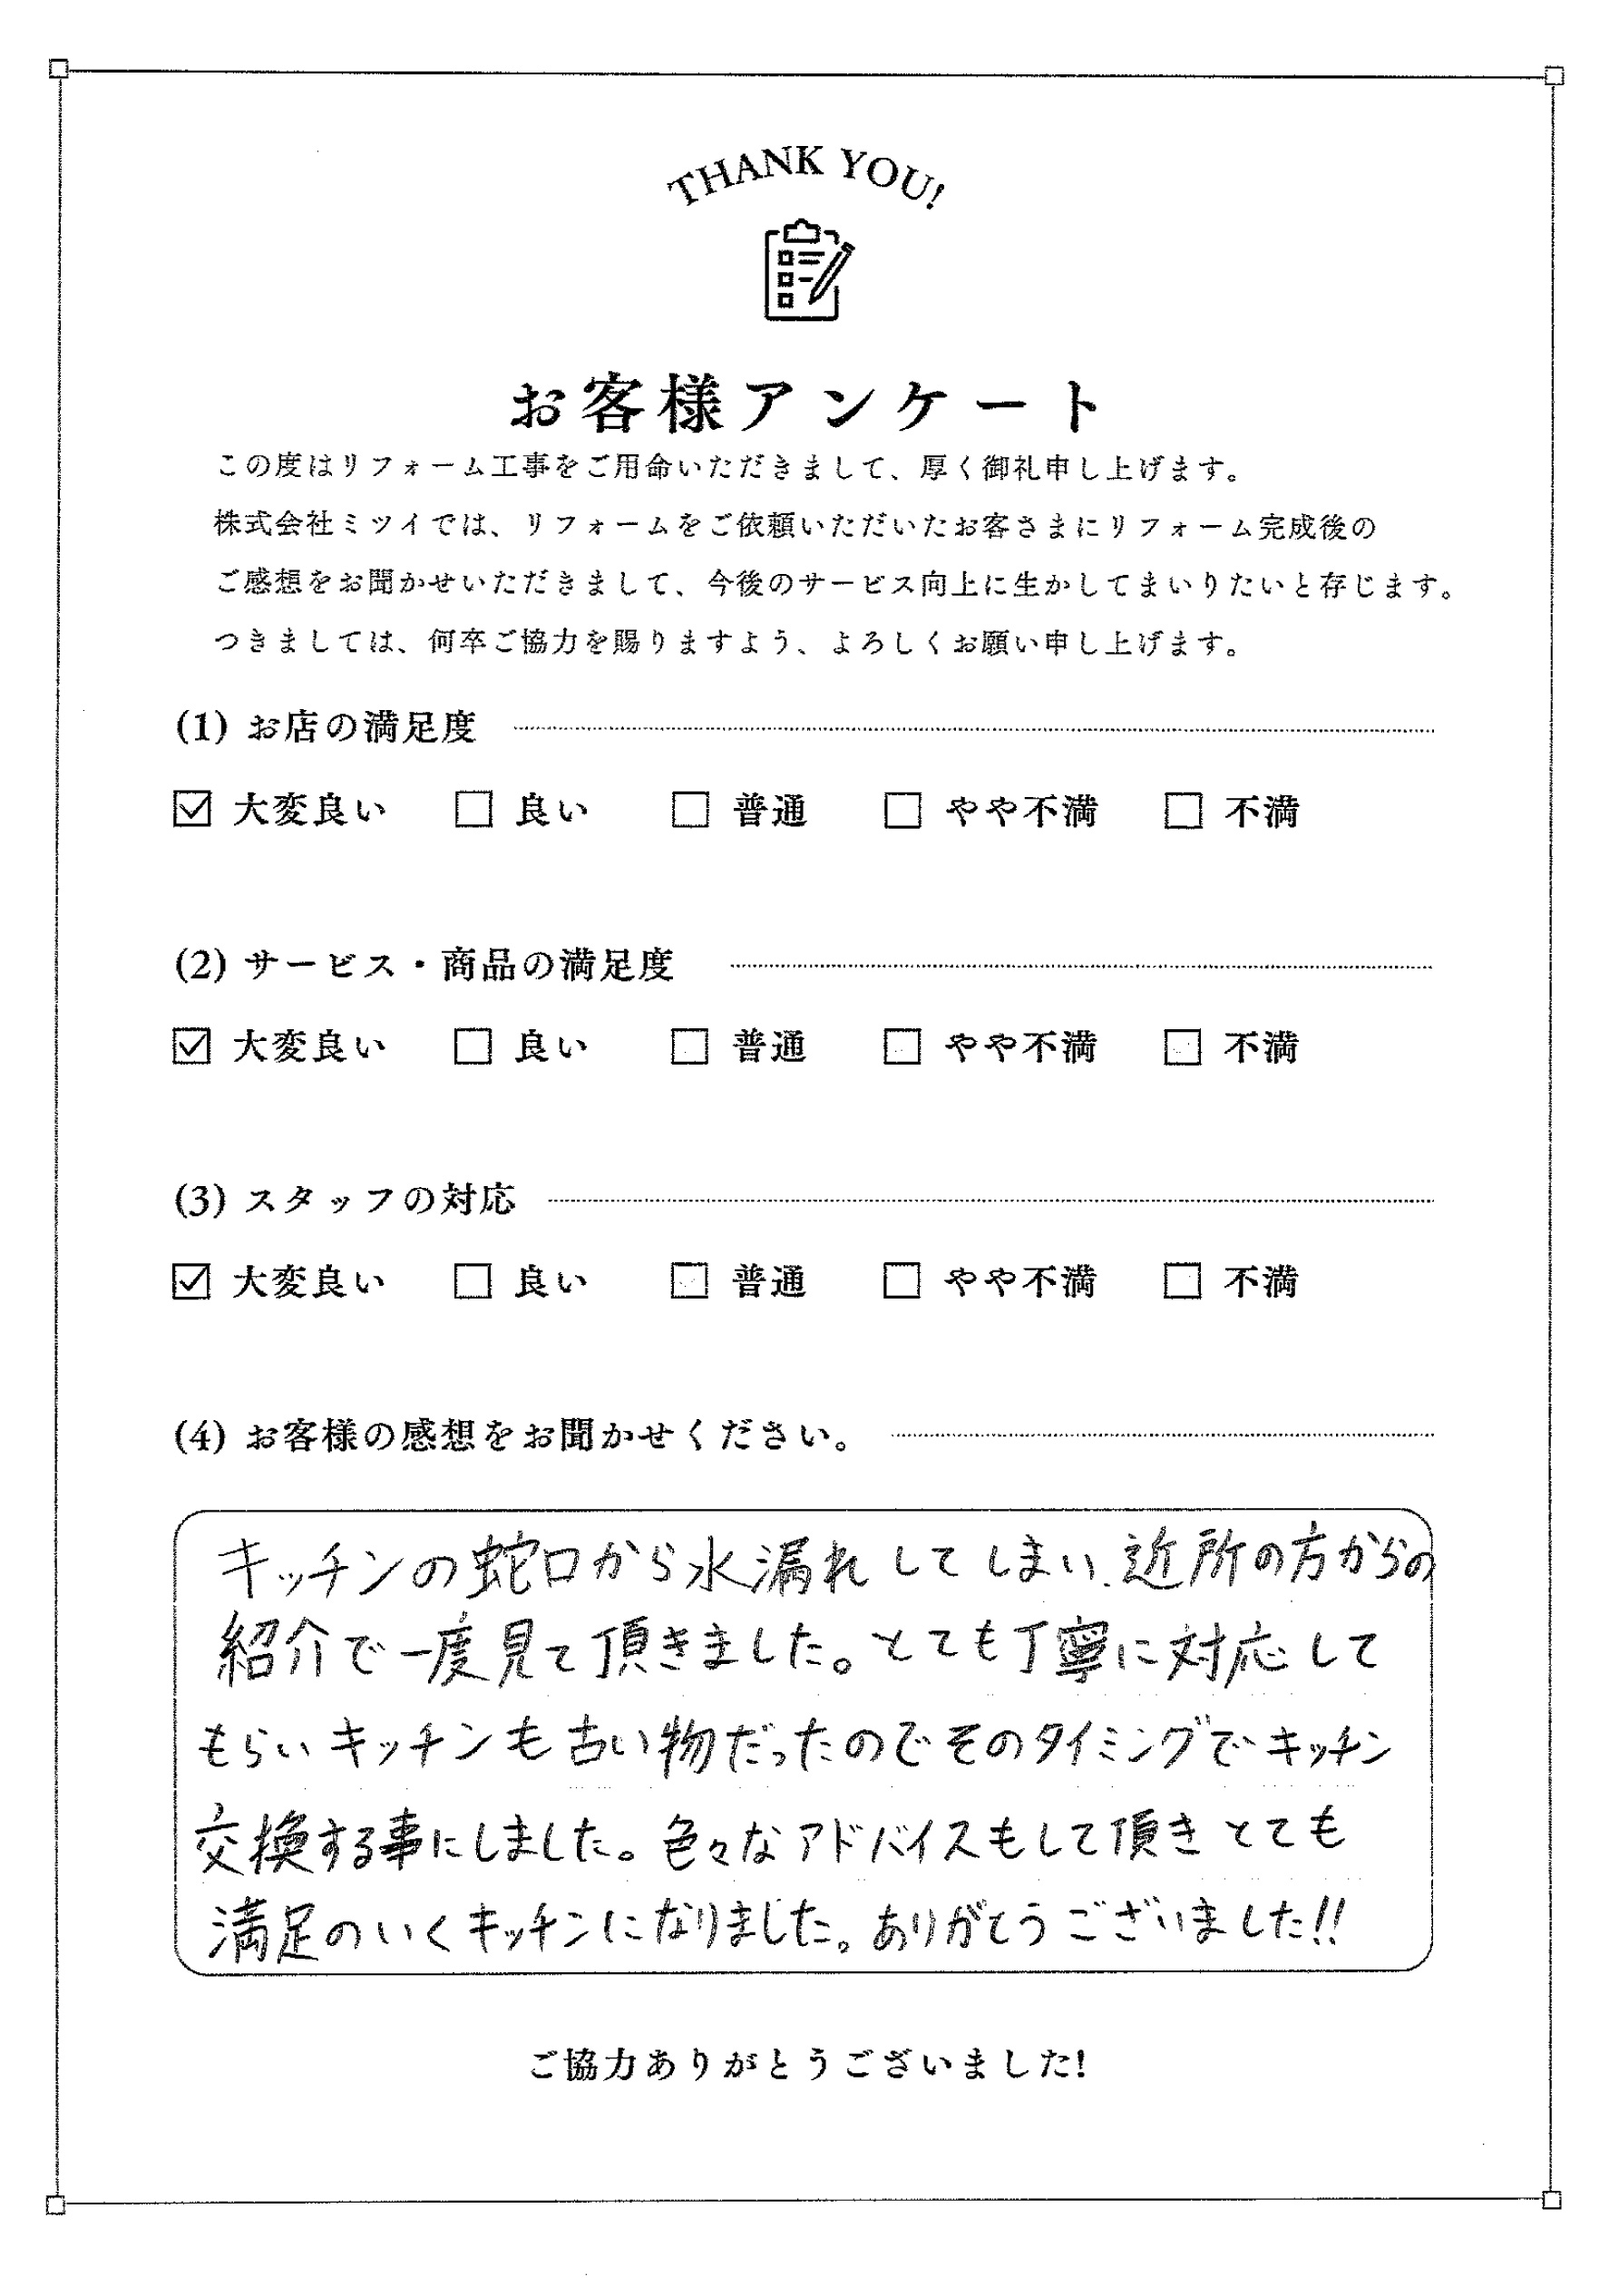 THANK YOU!
お客様アンケート
この度はリフォーム工事をご用命いただきまして、厚く御礼申し上げます。
株式会社ミツイでは、リフォームをご依頼いただいたお客さまにリフォーム完成後の
ご感想をお聞かせいただきまして、今後のサービス向上に生かしてまいりたいと存じます。
つきましては、何卒ご協力を賜りますよう、よろしくお願い申し上げます。
(1) お店の満足度
☑ 大変良い □ 良い □ 普通 □ やや不満 □ 不満
(2) サービス・商品の満足度
☑ 大変良い □ 良い □ 普通 □ やや不満 □ 不満
(3) スタッフの対応
☑ 大変良い □ 良い □ 普通 □ やや不満 □ 不満
(4) お客様の感想をお聞かせください。
キッチンの蛇口から水漏れしてしまい、近所の方からの
紹介で一度見て頂きました。とても丁寧に対応して
もらいキッチンも古い物だったのでそのタイミングでキッチン
交換する事にしました。色々なアドバイスもして頂きとても
満足のいくキッチンになりました。ありがとうございました!!
ご協力ありがとうございました!